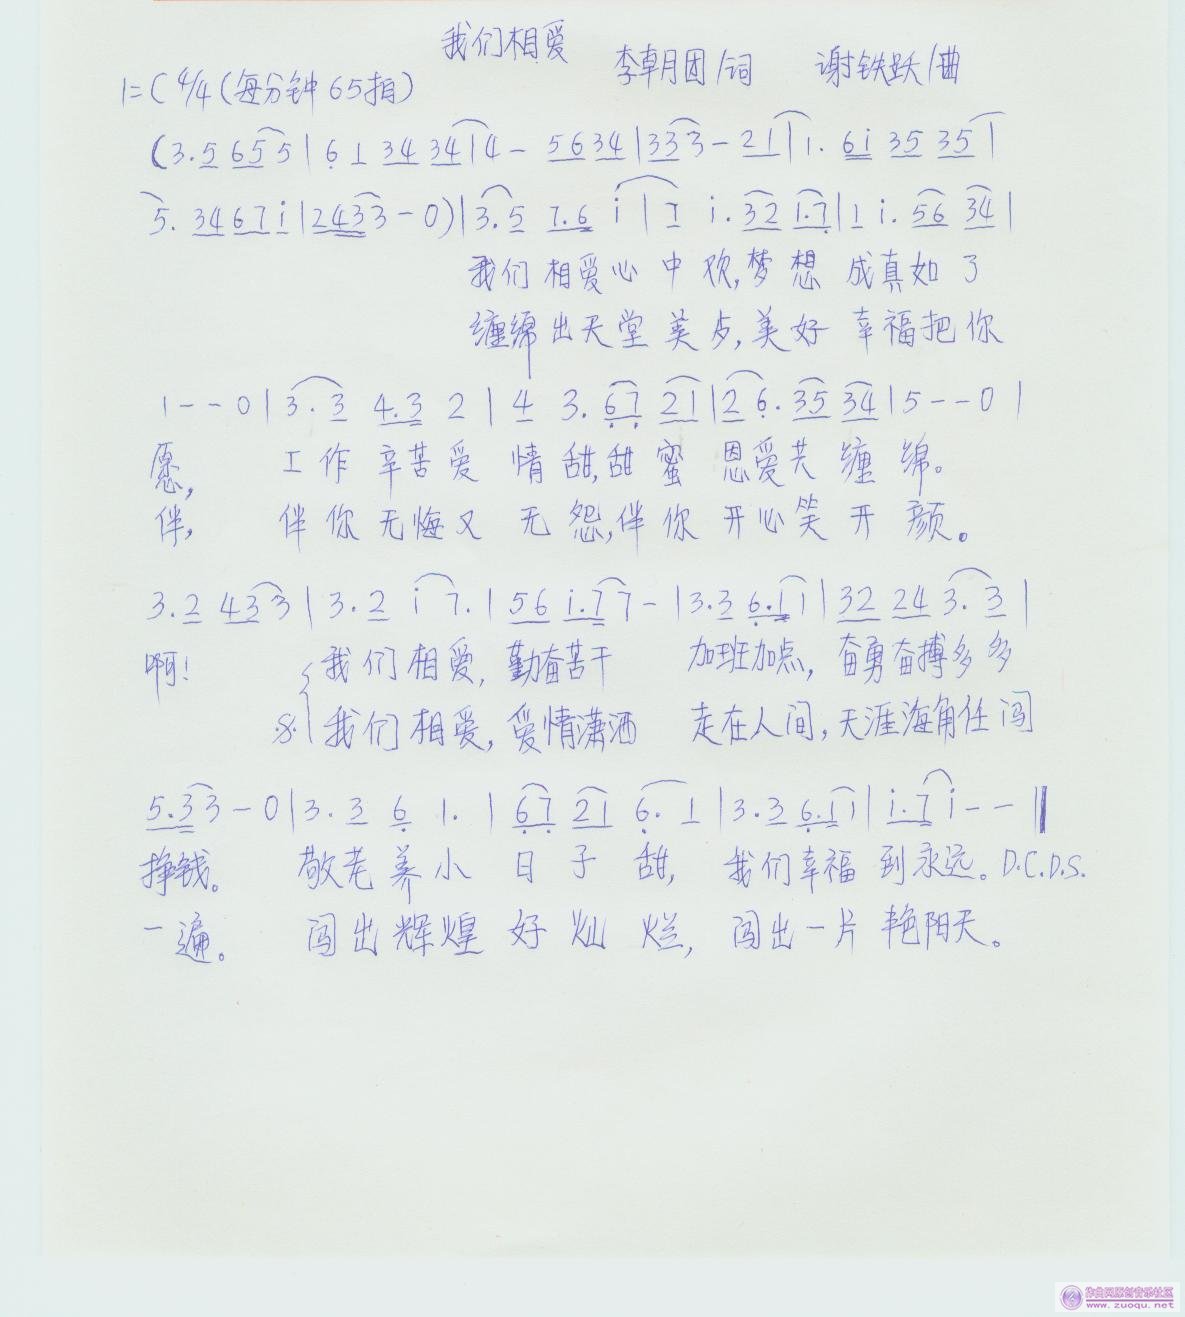 我们相爱
李朝月团/词 谢铁跃/曲
1=C 4/4(每分钟65拍)
(3.5 655|61 34 34|4- 5634|333-21|1. 6i 35 35|
5. 3467i|2433-0)|3.5 7.6 i|i i.32 i.7|1 i.56 34|
我们相爱心中欢,梦想成真如了
缠绵出天堂美步,美好幸福把你
1--0|3.3 4.3 2|4 3.67 21|26.35 34|5--0|
愿, 工作辛苦爱情甜,甜蜜恩爱共缠绵。
伴, 伴你无悔又无怨,伴你开心笑开颜。
3.2 433|3.2 i 7.|56 i.77-|3.3 6.11|32 24 3.3|
啊! 我们相爱,勤奋苦干 加班加点,奋勇奋搏多多
𝄋 我们相爱,爱情潇洒 走在人间,天涯海角任闯
5.33-0|3.3 6 1.|67 21 6.1|3.3 6.11|i.7i--‖
挣钱。 敬老养小日子甜, 我们幸福到永远。D.C.D.S.
一遍。 闯出辉煌好灿烂, 闯出一片艳阳天。
作曲网原创音乐社区
www.zuoqu.net